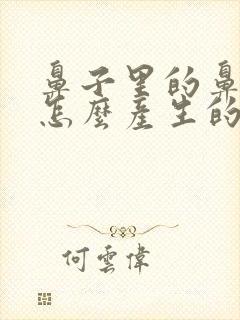 鼻子里的鼻
怎麼產生的
何雲偉